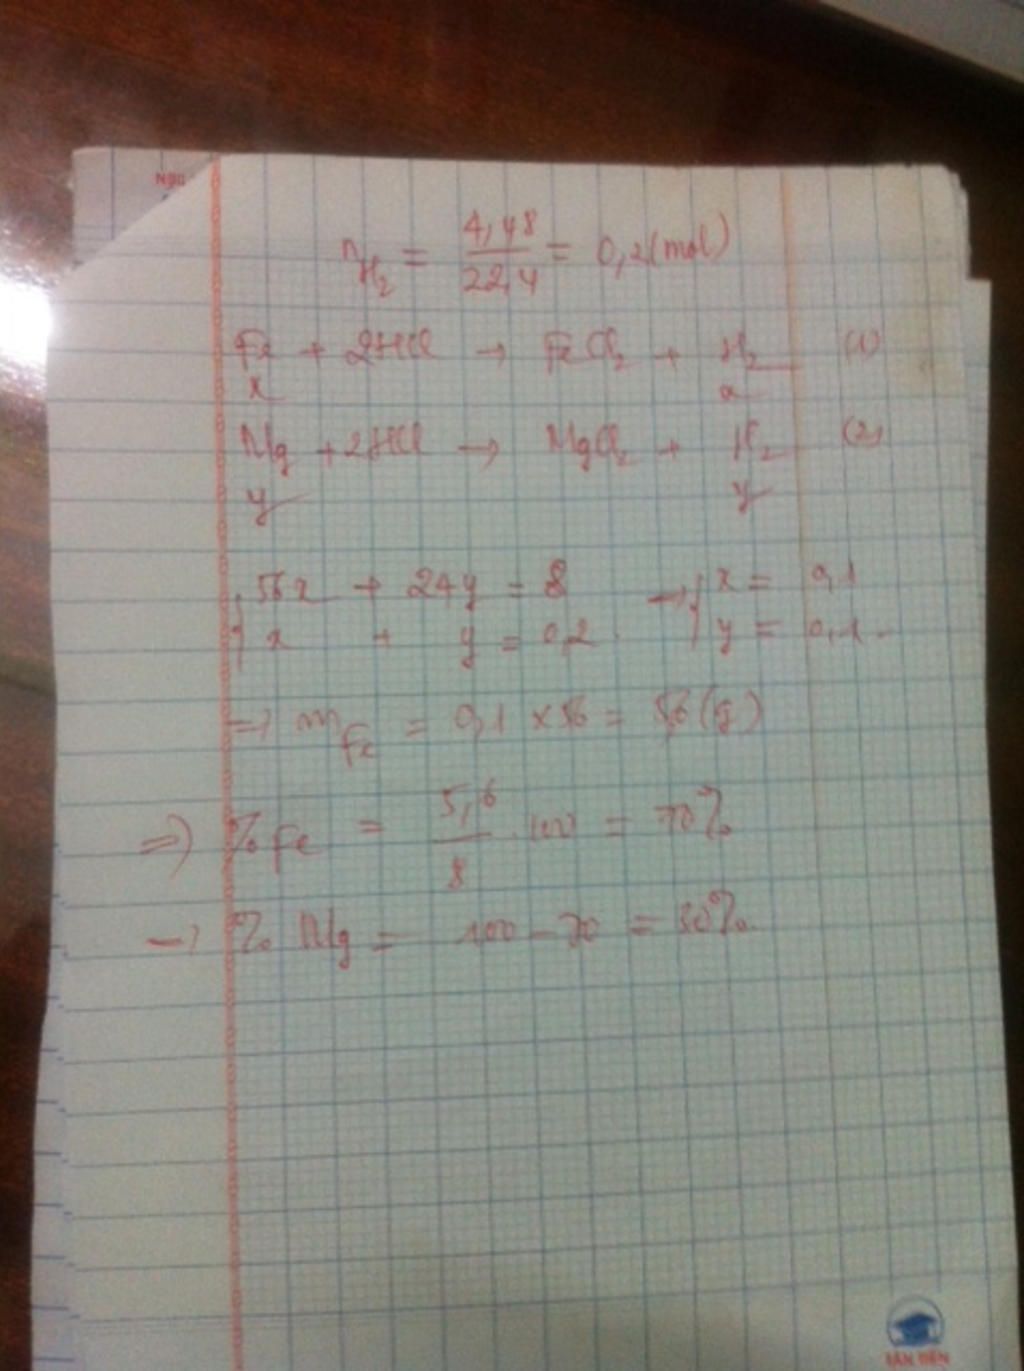 NGU
n_H2 = 4,48/22,4 = 0,2 (mol)
Fe + 2HCl → FeCl2 + H2 (1)
x x
Mg + 2HCl → MgCl2 + H2 (2)
y y
{ 56x + 24y = 8 → { x = 0,1
x + y = 0,2 y = 0,1
=> m_Fe = 0,1 x 56 = 5,6 (g)
=> % Fe = 5,6/8 . 100 = 70%
→ % Mg = 100 - 70 = 30%
TÂN TIẾN